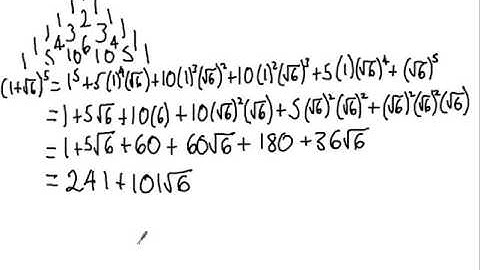 1 1
1 2 1
1 3 3 1
1 4 6 4 1
1 5 10 10 5 1
(1+√6)^5 = 1^5+5(1)^4(√6)+10(1)^3(√6)^2+10(1)^2(√6)^3+5(1)(√6)^4+(√6)^5
= 1+5√6+10(6)+10(√6)^2(√6)+5(√6)^2(√6)^2+(√6)^2(√6)^2(√6)
= 1+5√6+60+60√6+180+36√6
= 241+101√6